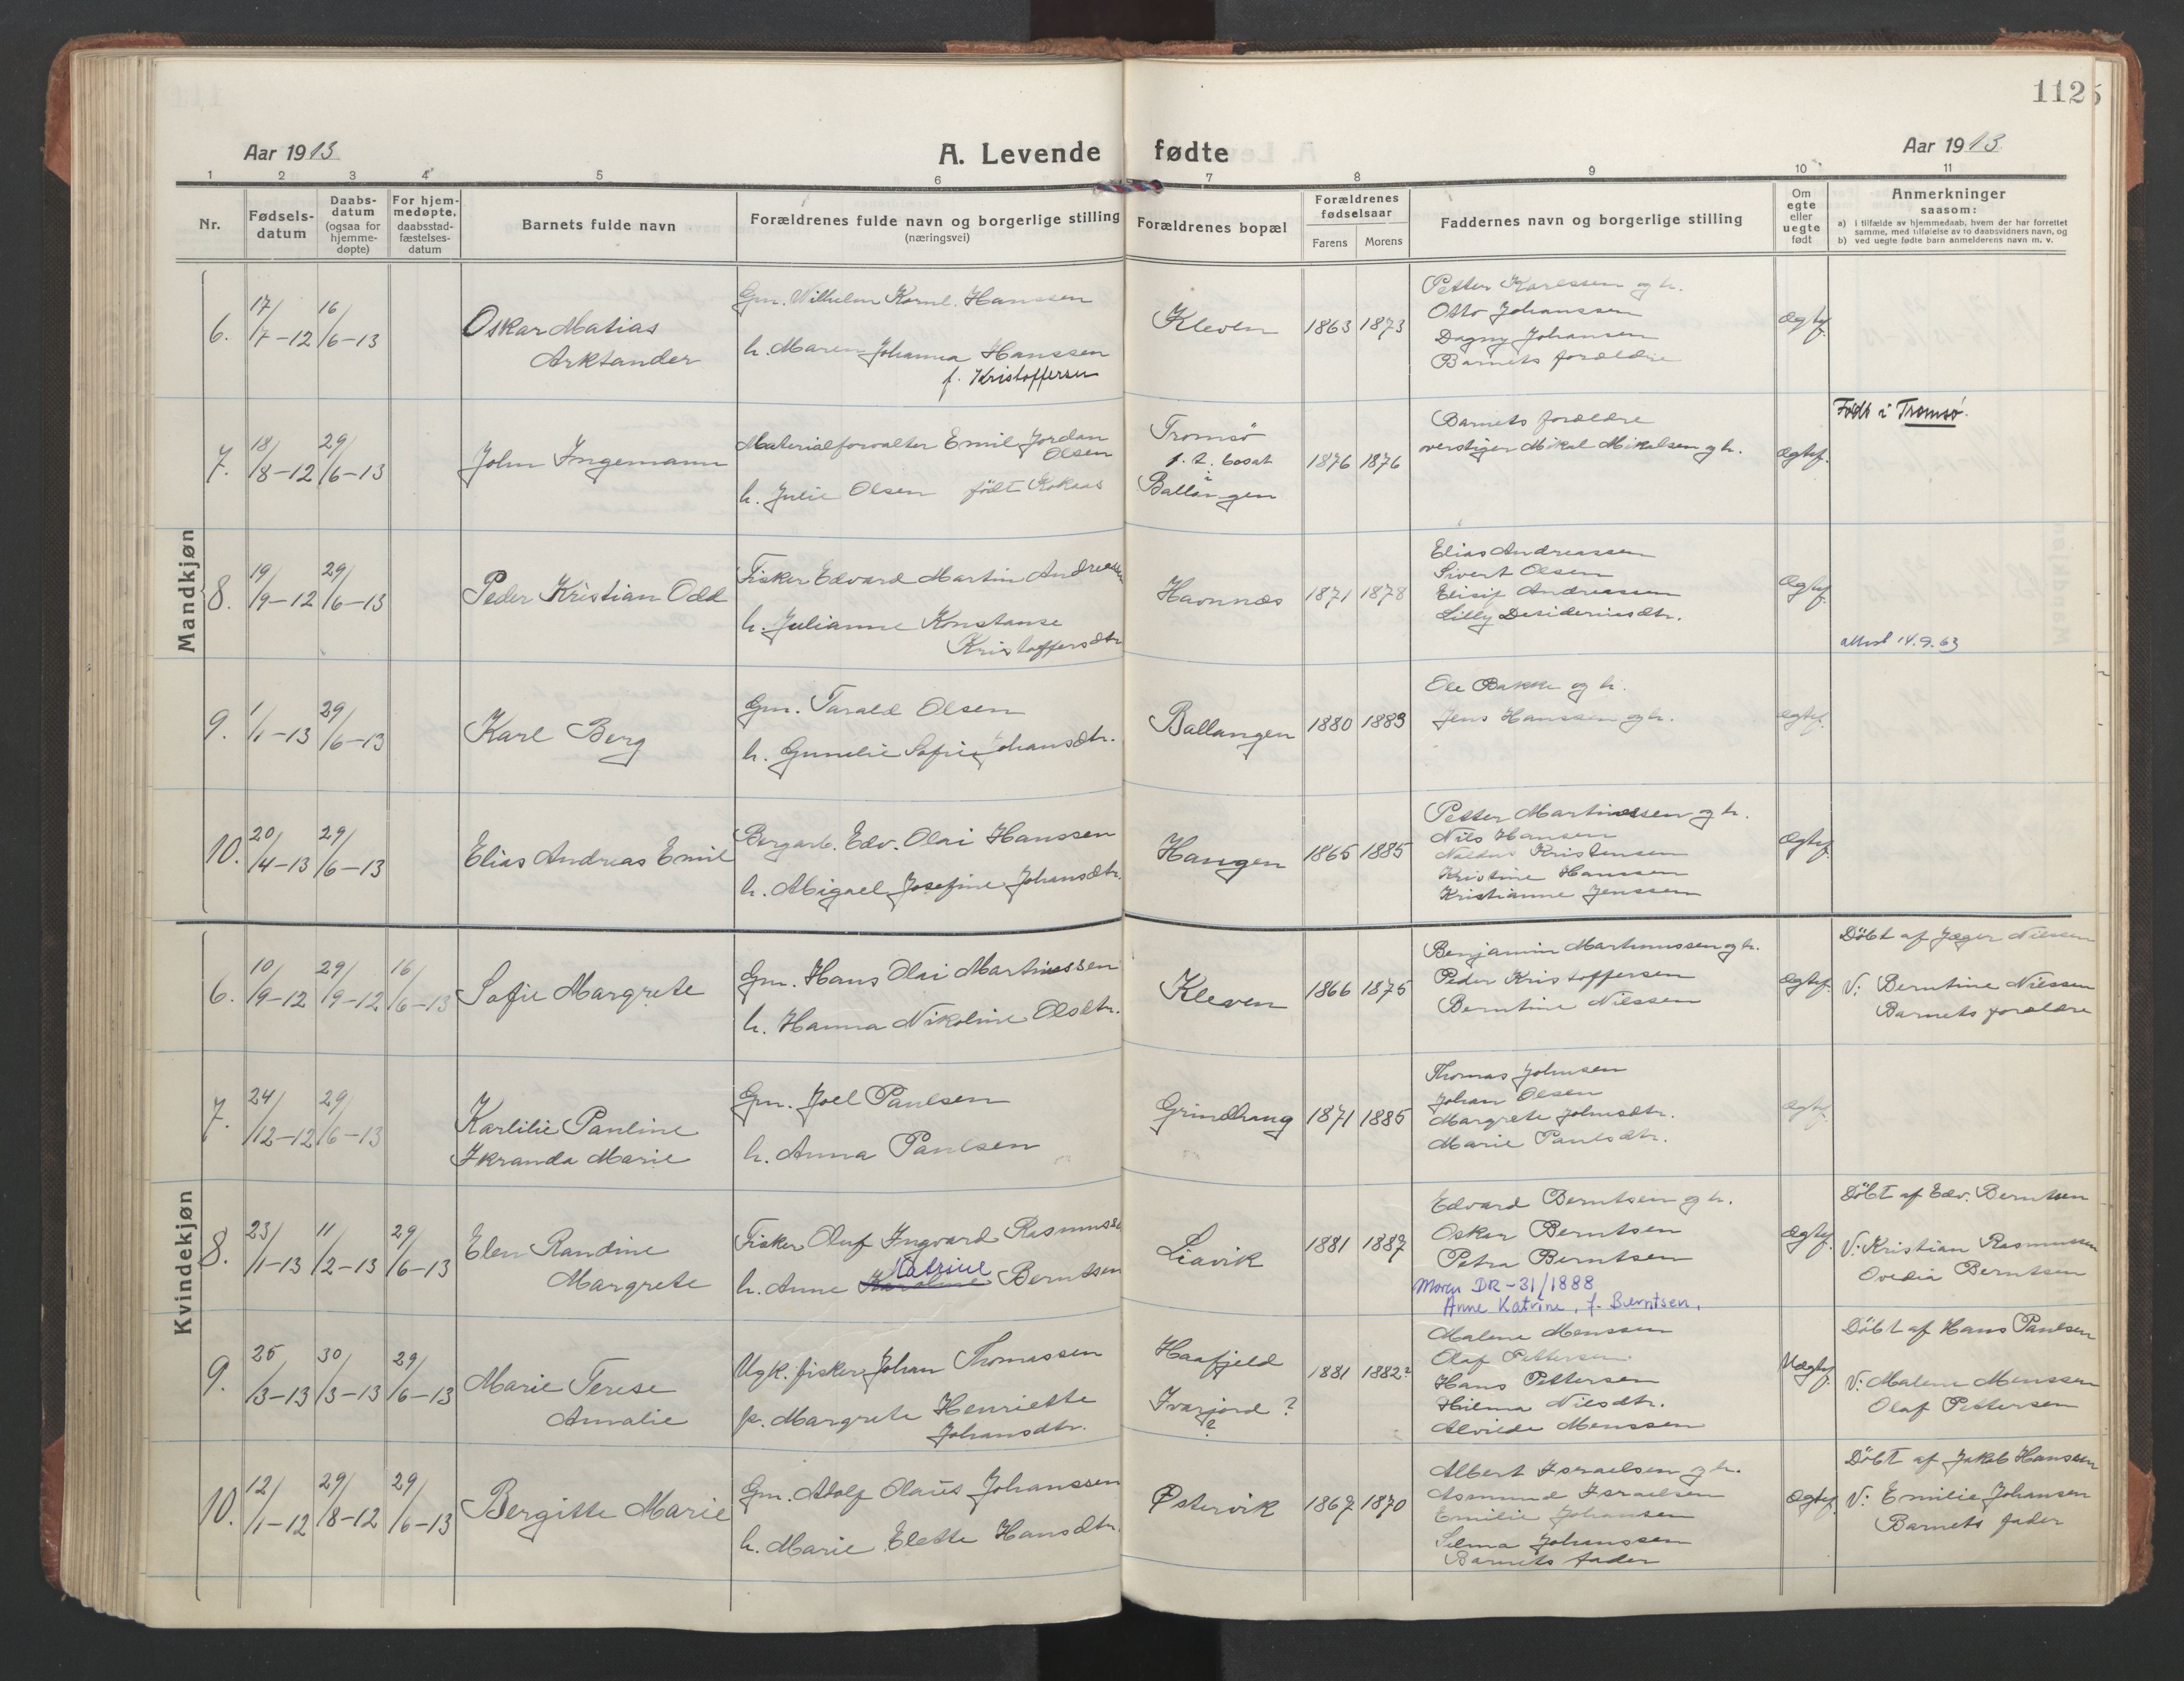 112
Aar 1913
A. Levende fødte
Aar 1913
1 2 3 4 5 6 7 8 9 10 11
Nr.
Fødsels-
datum
Daabs-
datum
(ogsaa for
hjemme-
døpte)
For hjem-
medøpte,
daabsstad-
fæstelses-
datum
Barnets fulde navn
Forældrenes fulde navn og borgerlige stilling
(næringsvei)
Forældrenes bopæl
Forældrenes
fødselsaar
Farens Morens
Faddernes navn og borgerlige stilling
Om
egte
eller
uegte
født
Anmerkninger
saasom:
a) i tilfælde av hjemmedaab, hvem der har forrettet
samme, med tilføielse av to daabsvidners navn, og
b) ved uegte fødte barn anmelderens navn m. v.
Mandkjøn
6. 17/7-12 16/6-13
Oskar Matias
Arktander
Gm. Wilhelm Kornl. Hanssen
h. Maren Johanna Hanssen
f. Kristoffersen
Kleven 1863 1873
Petter Karlssen og h.
Otto Johanssen
Dagny Johansen
Barnets forældre
Ægtef.
7. 18/8-12 29/6-13
John Ingemann
Materialforvalter Emil Jordan
Olsen
h. Julie Olsen født Kokaas
Tromsø
f. t. bosat
i
Ballangen
1876 1876
Barnets forældre
overstiger Mikal Mikalsen og h.
Ægtef.
Født i Tromsø.
8. 19/9-12 29/6-13
Peder Kristian Odd
Fisker Edvard Martin Andreassen
h. Julianne Konstanse
Kristoffersdtr
Havnnæs 1871 1878
Elias Andreassen
Sivert Olsen
Elisif Andreassen
Lilly Desideriusdtr.
Ægtef.
attest 14.9.63
9. 1/1-13 29/6-13
Karl Berg
Gm. Tarald Olsen
h. Gunelie Sofie Johansdtr.
Ballangen 1880 1883
Ole Bakke og h.
Jens Hanssen og h.
Ægtef.
10. 20/4-13 29/6-13
Elias Andreas Emil
Bergarb. Edv. Olai Hanssen
h. Abigael Josefine Johansdtr.
Haugen 1865 1885
Petter Martinessen og h.
Nils Hansen
Kristensen
Kristine Hanssen
Kristianne Jenssen
Ægtef.
Kvindekjøn
6. 10/9-12 29/9-12 16/6-13
Sofie Margrete
Gm. Hans Olai Martinussen
h. Hanna Nikoline Olsdtr.
Kleven 1866 1875
Benjamin Martinussen og h.
Peder Kristoffersen
Berntine Nilssen
Ægtef.
Döbt af Jæger Nilssen
V: Berntine Nilssen
Barnets forældre
7. 24/12-12 29/6-13
Karlilie Pauline
Ikranda Marie
Gm. Joel Paulsen
h. Anna Paulsen
Grindhaug 1871 1885
Thomas Johnsen
Johan Olsen
Margrete Johnsdtr.
Marie Paulsdtr.
Ægtef.
8. 23/1-13 11/2-13 29/6-13
Elen Randine
Margrete
Fisker Oluf Ingvard Rasmussen
Katrine
h. Anne Karoline Berntsen
Liavik 1881 1887
Edvard Berntsen og h.
Oskar Berntsen
Petra Berntsen
Moren DR-31/1888
Anne Katrine, f. Berntsen.
Ægtef.
Döbt af Edv. Berntsen
V: Kristian Rasmussen
Ovedia Berntsen
9. 25/3-13 30/3-13 29/6-13
Marie Terese
Amalie
Ugk. fisker Johan Thomassen
p. Margrete Henriette
Johansdtr.
Haafjeld
Ivarjord ?
?
1881 1882?
Malene Monssen
Olaf Pettersen
Hans Pettersen
Hilma Nilsdtr.
Alvilde Monssen
Uægtef.
Döbt af Hans Paulsen
V: Malene Monssen
Olaf Pettersen
10. 12/1-12 29/8-12 29/6-13
Bergitte Marie
Gm. Adolf Olaus Johanssen
h. Marie Elette Hansdtr.
Østervik 1867 1870
Albert Israelsen og h.
Asmund Israelsen
Emilie Johansen
Selma Johanssen
Barnets fader
Ægtef.
Döbt af Jakob Hanssen
V: Emilie Johansen
Barnets fader